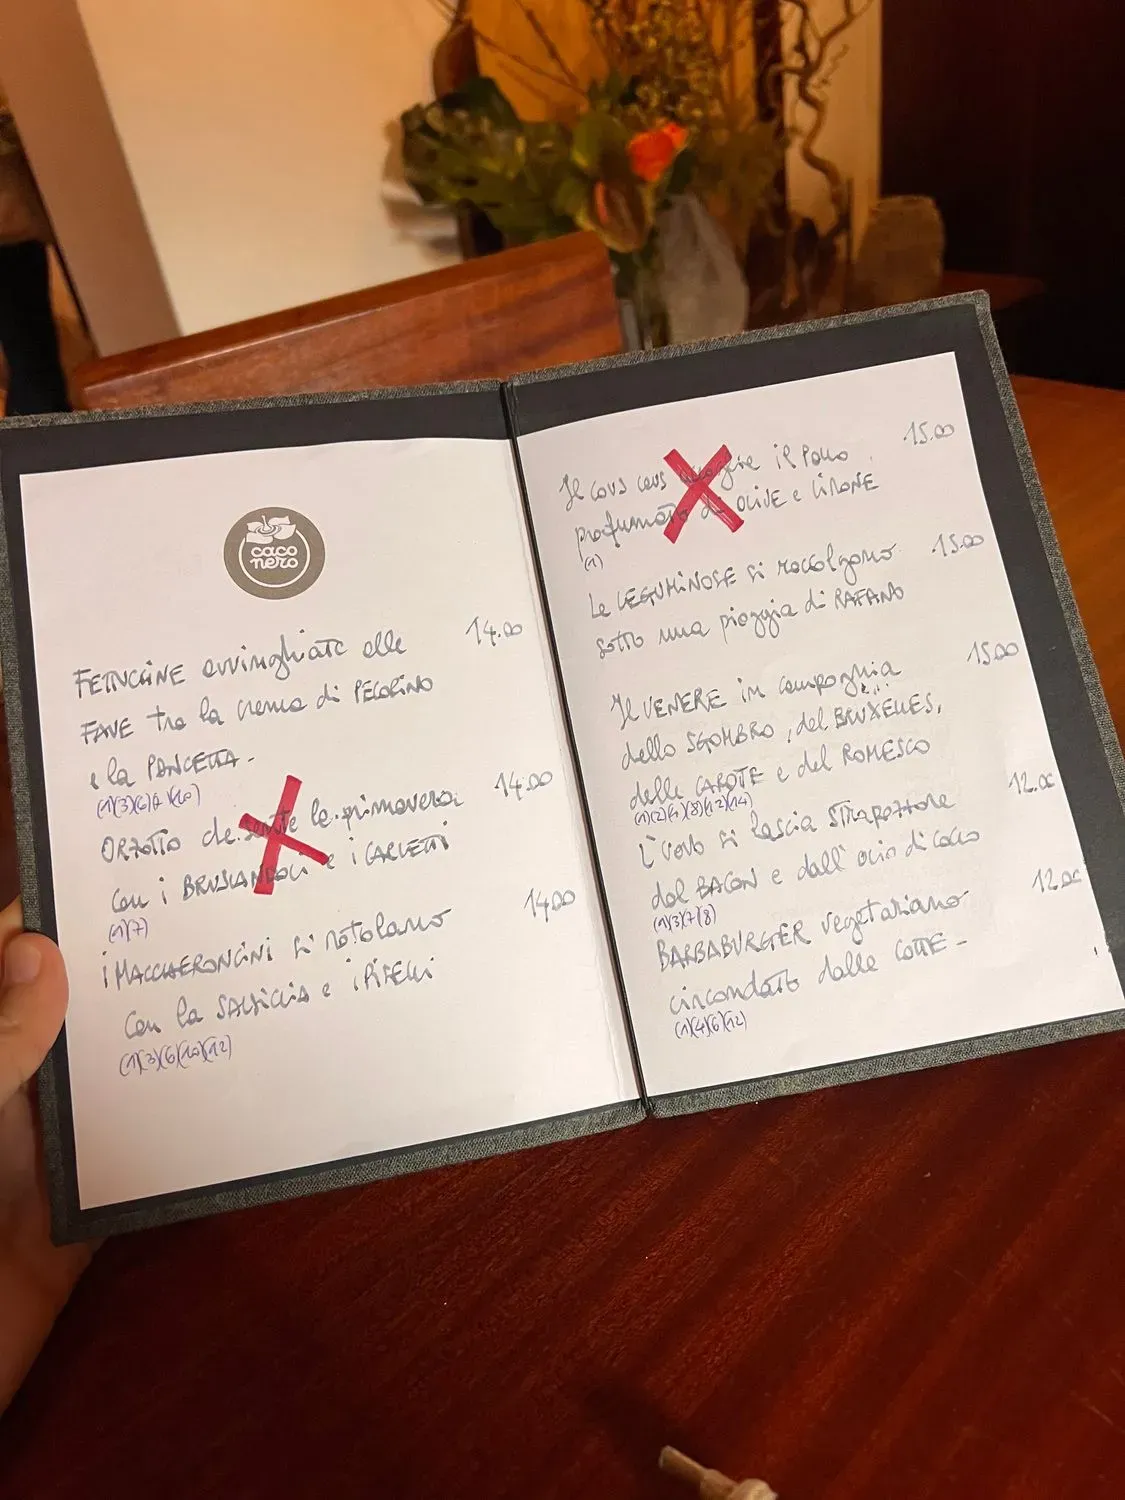 caco
nero
FETUCCINE avvinghiate alle 14.00
FAVE tra la crema di PECORINO
e la PANCETTA -
(1)(3)(6)(7)(10)
ORZOTTO che sente la primavera 14.00
con i BRUSCANDOLI e i CARLETTI
(1)(7)
i MACCHERONCINI si rotolano 14.00
con la SALSICCIA e i PISELLI
(1)(3)(6)(10)(12)
Il cous cous accoglie il Pollo 15.00
profumato di OLIVE e LIMONE
(1)
Le LEGUMINOSE si raccolgono 15.00
sotto una pioggia di RAFANO
Il VENERE in compagnia 15.00
dello SGOMBRO, del BRUXELLES,
delle CAROTE e del ROMESCO
(1)(2)(4)(8)(12)(14)
L'uovo si lascia STRAPAZZARE 12.00
dal BACON e dall'olio di cocco
(1)(3)(7)(8)
BARBABURGER vegetariano 12.00
circondato dalle COTTE -
(1)(4)(6)(12)